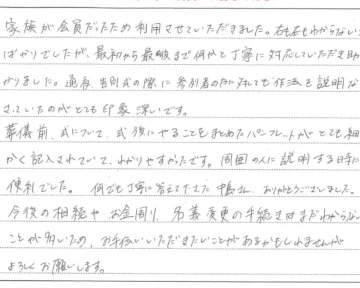 家族が会員だったため利用させていただきました。右も左もわからない
ばかりでしたが、最初から最後まで何かと丁寧に対応していただき助
かりました。通夜、告別式の際に参列者の方に対しても作法を説明な
さっていたのがとても印象深いです。
葬儀前、式について、式後にやることをまとめたパンフレットがとても細
かく記入されていて、わかりやすかったです。周囲の人に説明する時に
便利でした。何でも丁寧に答えてくださった中島さん、ありがとうございました。
今後の相続やお金周り、名義変更の手続きはまだわからない
ことが多いため、お手伝いいただきたいことがあるかもしれませんが
よろしくお願いします。